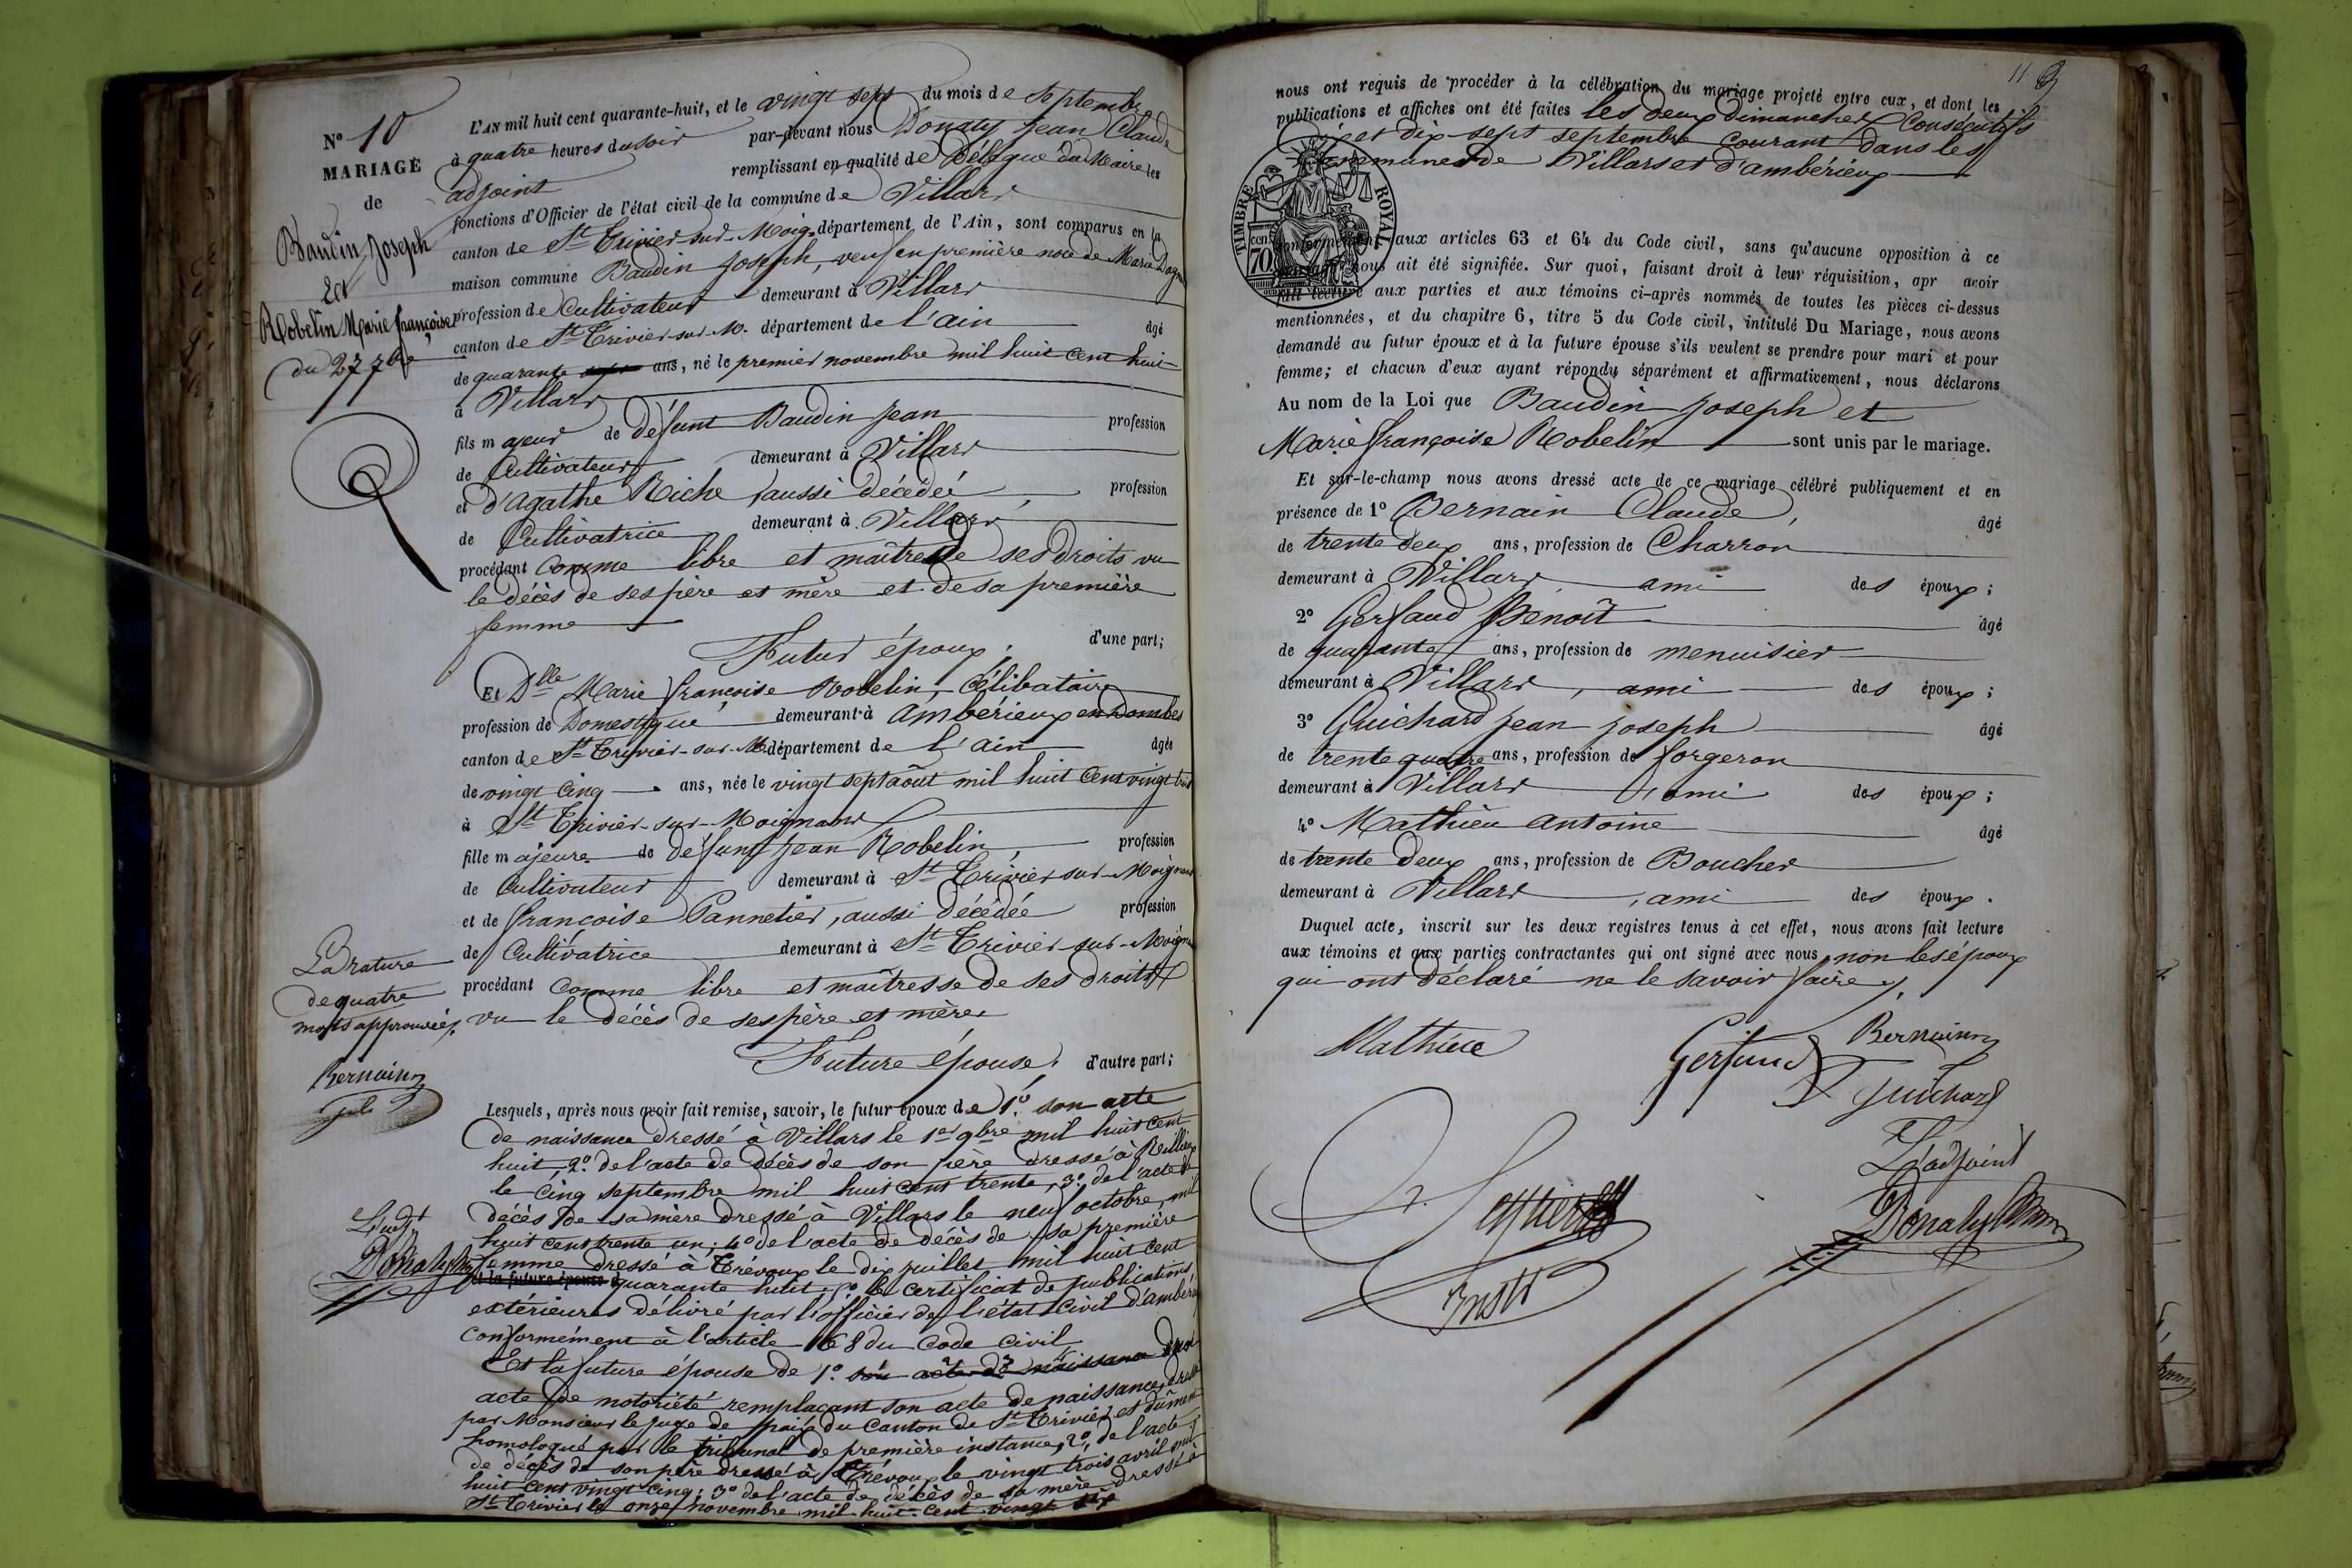 N° 10
MARIAGE
de
Baudin Joseph
Et
Robelin Marie françoise
du 27 7bre
L'AN mil huit cent quarante-huit, et le vingt sept du mois de Septembre
à quatre heures du soir par-devant nous Donaty Jean Claude
adjoint remplissant en qualité de Délégué du Maire les
fonctions d'Officier de l'état civil de la commune de Villars
canton de St Trivier-sur-Moig. département de l'Ain, sont comparus en la
maison commune Baudin Joseph, veuf en première noce de Marie
profession de Cultivateur demeurant à Villars
canton de St Trivier-sur-M. département de l'ain âgé
de quarante ans, né le premier novembre mil huit cent huit
à Villars
fils majeur de défunt Baudin Jean profession
de Cultivateur demeurant à Villars
et d'Agathe Riche, aussi Décédée, profession
de Cultivatrice demeurant à Villars
procédant Comme libre et maître de ses Droits vu
le décès de ses père et mère et de sa première
femme
Futur époux, d'une part;
Et Dlle Marie françoise Robelin, Célibataire
profession de Domestique demeurant à Ambérieux en Dombes
canton de St Trivier-sur-M. département de l'ain âgée
de vingt cinq ans, née le vingt sept août mil huit cent vingt trois
à St Trivier-sur-Moignans
fille majeure de défunt Jean Robelin, profession
de Cultivateur demeurant à St Trivier sur-Moignans
et de françoise Pannetier, aussi décédée profession
de Cultivatrice demeurant à St Trivier-sur-Moign
procédant Comme libre et maîtresse de ses droits
vu le décès de ses père et mère
Future épouse, d'autre part;
La rature
de quatre
mots approuvée.
Bernain
Lesquels, après nous avoir fait remise, savoir, le futur époux de 1° son acte
de naissance dressé à Villars le 1er 9bre mil huit cent
huit, 2° de l'acte de décès de son père dressé à Rillieux
le Cinq septembre mil huit cent trente, 3° de l'acte de
décès de sa mère dressé à Villars le neuf octobre mil
huit cent trente un; 4° de l'acte de décès de sa première
femme dressé à Trévoux le dix juillet mil huit cent
et la future épouse d quarante huit, 5° le certificat de publications
extérieures délivré par l'officier de l'état civil d'ambéri
Conformément à l'article 168 du Code Civil
Et la future épouse de 1° son acte de naissance
acte de notoriété remplaçant son acte de naissance, dressé
par Monsieur le Juge de paix du Canton de St Trivier et dûment
homologué par le tribunal de première instance, 2° de l'acte
de décès de son père dressé à Trévoux le vingt trois avril mil
huit cent vingt cinq; 3° de l'acte de décès de sa mère dressé à
St Trivier le onze novembre mil huit cent vingt six
L'adjt
Donaty
11
nous ont requis de procéder à la célébration du mariage projeté entre eux, et dont les
publications et affiches ont été faites les deux Dimanches Consécutifs
dix et dix-sept septembre courant dans les
Communes de Villars et d'ambérieux
TIMBRE ROYAL
70 cen.
conformément aux articles 63 et 64 du Code civil, sans qu'aucune opposition à ce
mariage nous ait été signifiée. Sur quoi, faisant droit à leur réquisition, apr avoir
fait lecture aux parties et aux témoins ci-après nommés de toutes les pièces ci-dessus
mentionnées, et du chapitre 6, titre 5 du Code civil, intitulé Du Mariage, nous avons
demandé au futur époux et à la future épouse s'ils veulent se prendre pour mari et pour
femme; et chacun d'eux ayant répondu séparément et affirmativement, nous déclarons
Au nom de la Loi que Baudin Joseph et
Marie françoise Robelin sont unis par le mariage.
Et sur-le-champ nous avons dressé acte de ce mariage célébré publiquement et en
présence de 1° Bernain Claude, âgé
de trente deux ans, profession de Charron
demeurant à Villars ami des époux;
2° Gerfaud Benoît âgé
de quarante ans, profession de menuisier
demeurant à Villars, ami des époux;
3° Guichard Jean Joseph âgé
de trente quatre ans, profession de forgeron
demeurant à Villars, ami des époux;
4° Mathieu Antoine âgé
de trente deux ans, profession de Boucher
demeurant à Villars, ami des époux.
Duquel acte, inscrit sur les deux registres tenus à cet effet, nous avons fait lecture
aux témoins et aux parties contractantes qui ont signé avec nous, non les époux
qui ont déclaré ne le savoir faire.
Mathieu
Gerfaud
Bernain
Guichard
L'adjoint
Donaty
Instr